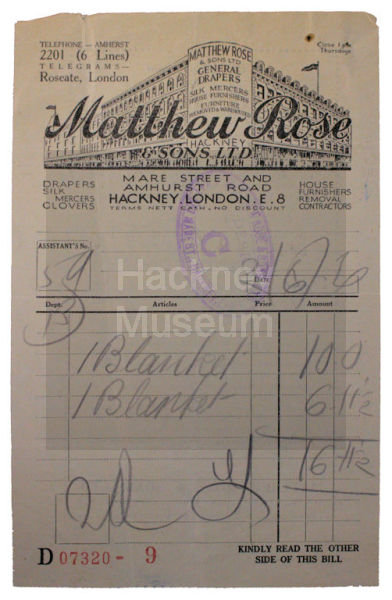 TELEPHONE – AMHERST
2201 (6 Lines)
TELEGRAMS –
Roscate, London
Close 1 p.m.
Thursdays
MATTHEW ROSE
& SONS LTD
GENERAL
DRAPERS
SILK MERCERS
HOUSE FURNISHERS
FURNITURE
REMOVED & WAREHOUSED
Matthew Rose
HACKNEY
& SONS LTD.
MARE STREET AND
AMHURST ROAD
HACKNEY, LONDON. E.8
TERMS NETT CASH. NO DISCOUNT
DRAPERS
SILK
MERCERS
GLOVERS
HOUSE
FURNISHERS
REMOVAL
CONTRACTORS
C
ASSISTANT'S No.
59
Date
Hackney
Museum
Dept. Articles Price Amount
13
1 Blanket 10 0
1 Blanket 6 11½
16 11½
D 07320 - 9
KINDLY READ THE OTHER
SIDE OF THIS BILL